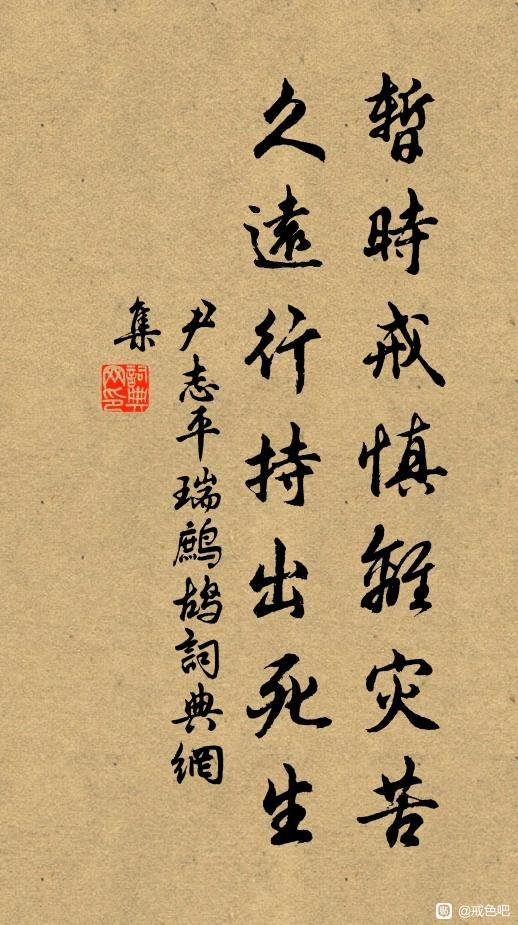 暫時戒慎離災苦
久遠行持出死生
尹志平瑞鷓鴣詞典網
集
詞典網印
@戒色吧